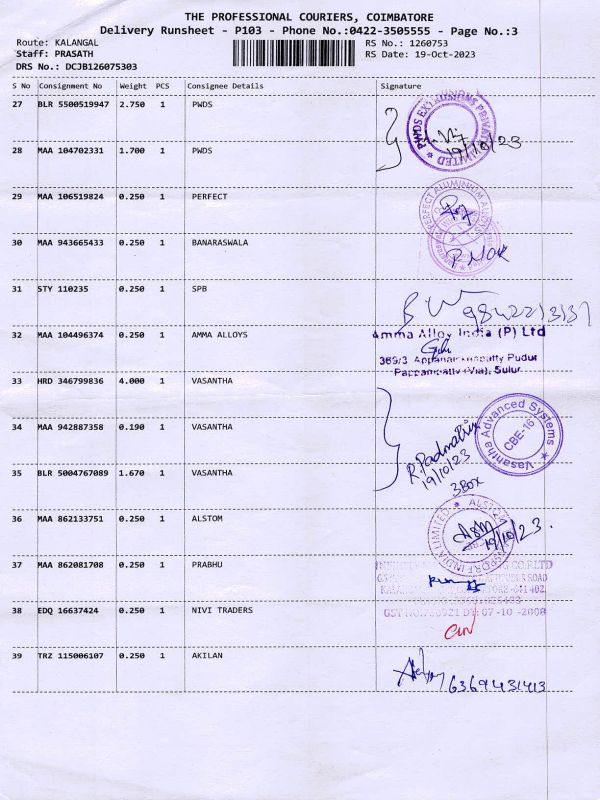 THE PROFESSIONAL COURIERS, COIMBATORE
Delivery Runsheet - P103 - Phone No.:0422-3505555 - Page No.:3
Route: KALANGAL RS No.: 1260753
Staff: PRASATH RS Date: 19-Oct-2023
DRS No.: DCJB126075303
S No Consignment No Weight PCS Consignee Details Signature
27 BLR 5500519947 2.750 1 PWDS
PWDS EXTRUSIONS PRIVATE LIMITED
19/10/23
28 MAA 104702331 1.700 1 PWDS
29 MAA 106519824 0.250 1 PERFECT
PERFECT ALUMINIUM ALLOYS
30 MAA 943665433 0.250 1 BANARASWALA
31 STY 110235 0.250 1 SPB
9842213137
32 MAA 104496374 0.250 1 AMMA ALLOYS
Amma Alloy India (P) Ltd
369/3 Pudur
Pappampatty (Via), Sulur
33 HRD 346799836 4.000 1 VASANTHA
34 MAA 942887358 0.190 1 VASANTHA
Vasantha Advanced Systems
CBE-16
R. Padma
19/10/23
35 BLR 5004767089 1.670 1 VASANTHA
3 BOX
36 MAA 862133751 0.250 1 ALSTOM
INDIA LIMITED
19/10/23.
37 MAA 862081708 0.250 1 PRABHU
CO.RLTD
ROAD
641 402
38 EDQ 16637424 0.250 1 NIVI TRADERS
GST NO. DT: 07-10-2008
39 TRZ 115006107 0.250 1 AKILAN
6369431413